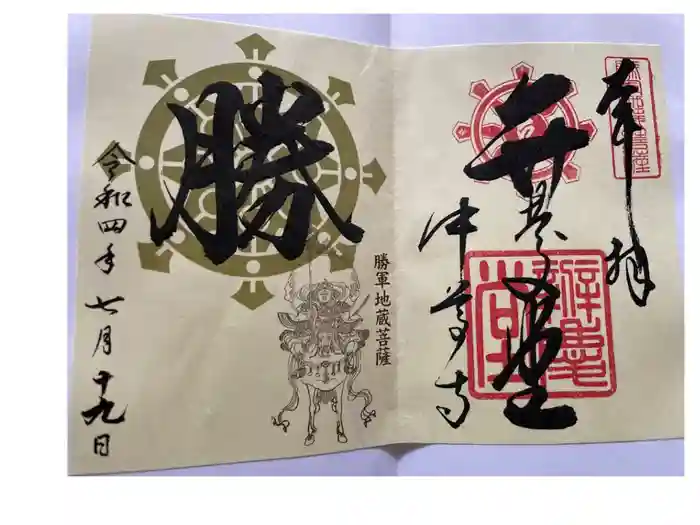 奉拝
弁慶堂
中尊寺
勝軍地蔵菩薩
勝
令和四年七月十九日